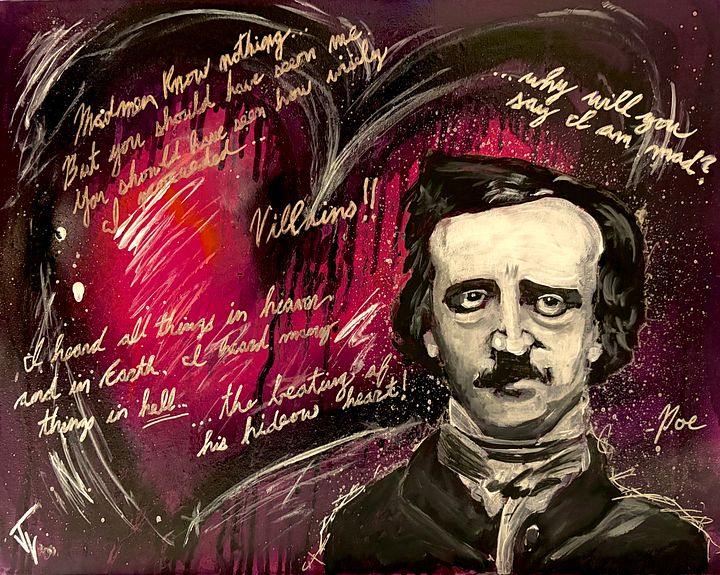 Madmen know nothing..
But you should have seen me
You should have seen how wisely
I proceeded ...
...why will you
say I am mad?
Villains!!
I heard all things in heaven
and in Earth. I heard many
things in hell...
... the beating of
his hideous heart!
-Poe